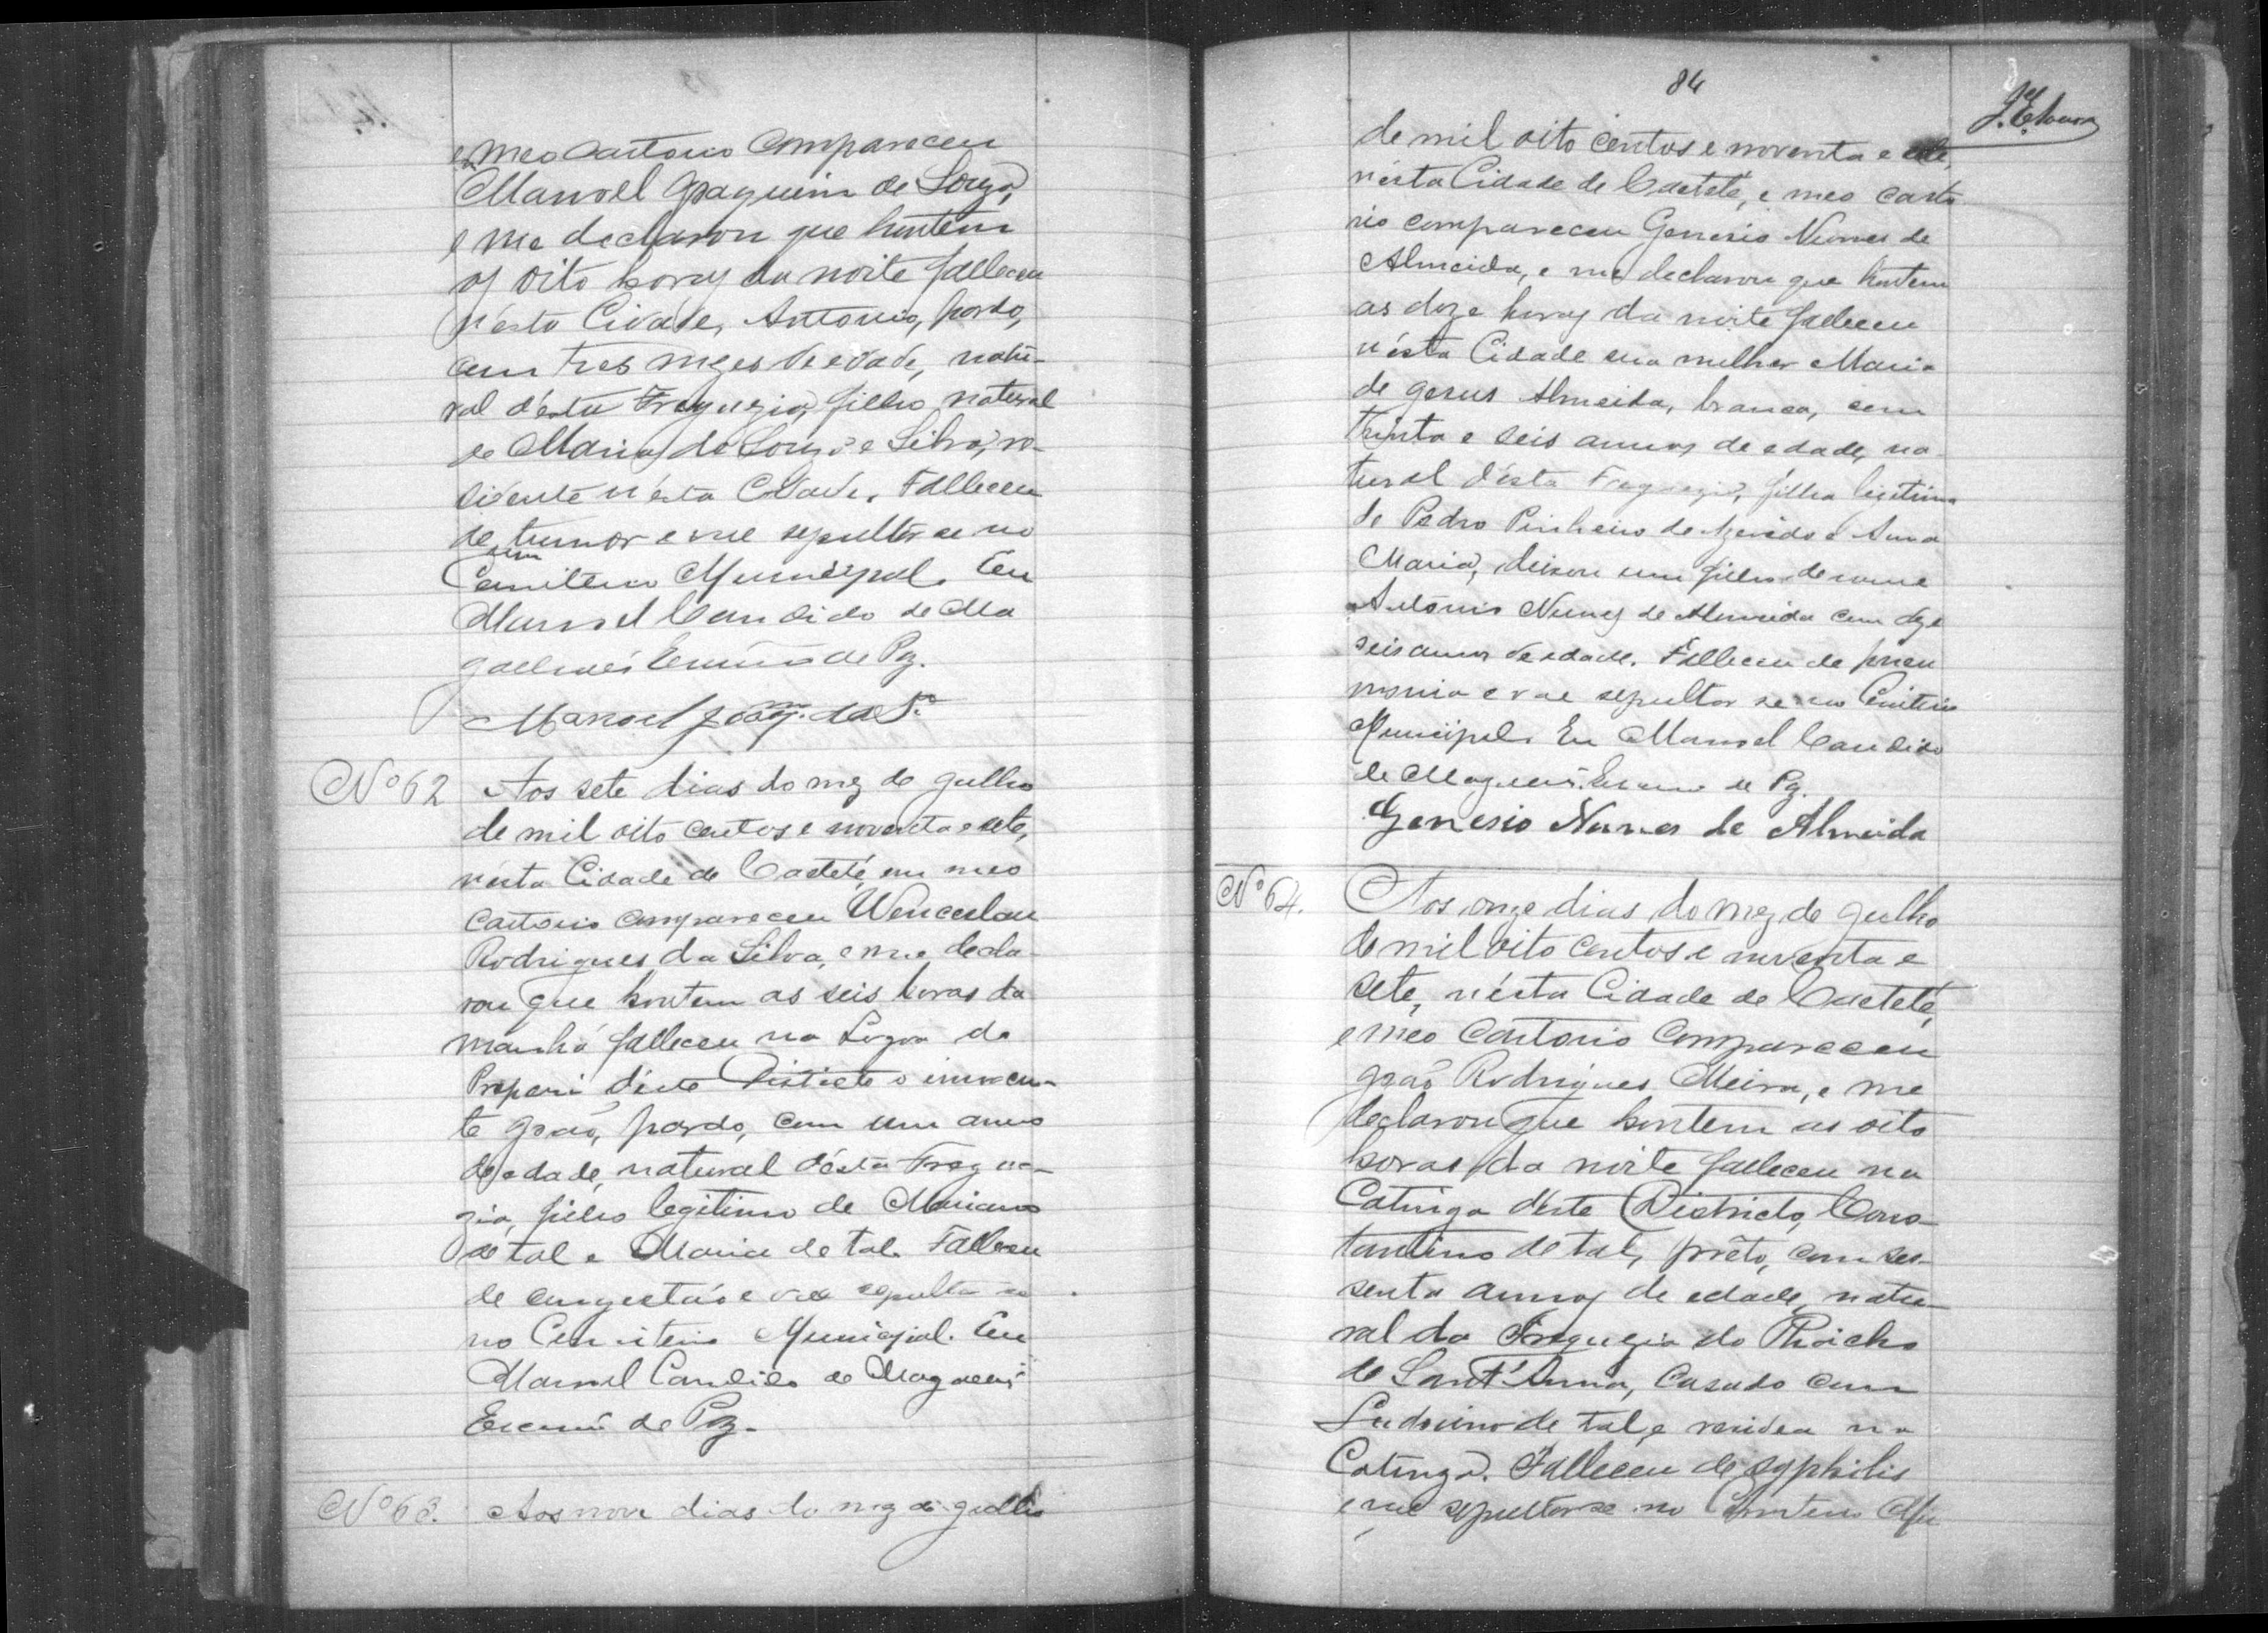 e meo Cartorio Compareceu
Manoel Joaquim de Souza,
e me declarou que hontem
as oito horas da noite falleceu
n'ésta Cidade, Antonio, pardo,
com tres mezes de edade, natu-
ral d'ésta Freguezia, filho natural
de Maria de Souza e Silva, re-
sidente n'ésta Cidade. Falleceu
de tumor e vae sepultar se no
Cemiterio Municipal. Eu
Manoel Candido de Ma
galhaés Escrivão de Paz.
Manoel Joaqm. da Sa.
No 62 Aos sete dias do mez de Julho
de mil oito centos e noventa e sete,
n'ésta Cidade de Caeteté, em meo
Cartorio compareceu Wenceslau
Rodrigues da Silva, e me decla-
rou que hontem as seis horas da
manhã falleceu na Lagoa de
d'éste Districto o innocen-
te João, pardo, com um anno
de edade, natural d'ésta Fregue-
zia, filho legitimo de Mariano
de tal e Maria de tal. Falleceu
de congestão e vae sepultar se
no Cemiterio Municipal. Eu
Manoel Candido de Magalhaés
Escrivão de Paz.
No 63. Aos nove dias do mez de Julho
84
de mil oito centos e noventa e sete,
n'ésta Cidade de Caeteté, e meo carto
rio compareceu Genesio Nunes de
Almeida, e me declarou que hontem
as doze horas da noite falleceu
n'ésta Cidade sua mulher Maria
de Jesus Almeida, branca, com
trinta e seis annos de edade, na
tural d'ésta Freguezia, filha legitima
de Pedro Pinheiro de Azevedo e Anna
Maria, deixou um filho de nome
Antonio Nunes de Almeida com deze
seis annos de edade. Falleceu de pneu
monia e vae sepultar se no Cemiterio
Municipal. Eu Manoel Candido
de Magalhaés Escrivão de Paz.
Genesio Nunes de Almeida
No 64. Aos onze dias do mez de Julho
de mil oito centos e noventa e
sete, n'ésta Cidade de Caeteté,
e meo Cartorio Compareceu
João Rodrigues Meira, e me
declarou que hontem as oito
horas da noite falleceu na
Catinga d'éste Districto, Cons-
tantino de tal, prêto, com ses-
senta annos de edade, natu-
ral da Freguezia do Riacho
de Sant'Anna, Casado com
de tal, e residia na
Catinga. Falleceu de syphilis
e vae sepultar se no Cemiterio Mu